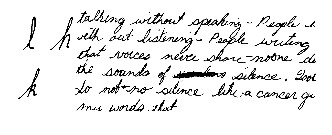 talking without speaking - People
l h with out listening - People writing
that voices never share - noone
the sounds of silence.
k so not-no silence like a cancer
my words that